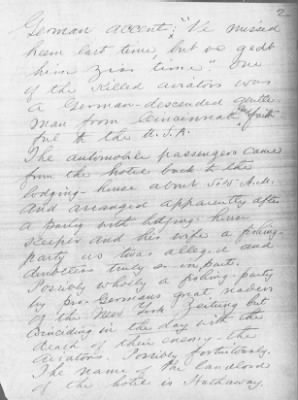 2
German accent; "Ve missed
heem last time, but ve gedt
him ziss time". One
of the killed aviators was
a German-descended gentle-
man from Cincinnati, "faith-
ful to the U.S.A.
The automobile passengers came
from the hotel back to the
lodging-house about A.M.
and arranged apparently after
a party with lodging-house
keeper and his wife a fishing-
party as was alleged and
doubtless truly so in part.
Possibly wholly a fishing-party
by pro-Germans great readers
of the New York Zeitung but
coinciding in the day with the
death of their enemy-the
aviators. Possibly fortuitously.
The name of the landlord
of the hotel is Hathaway.